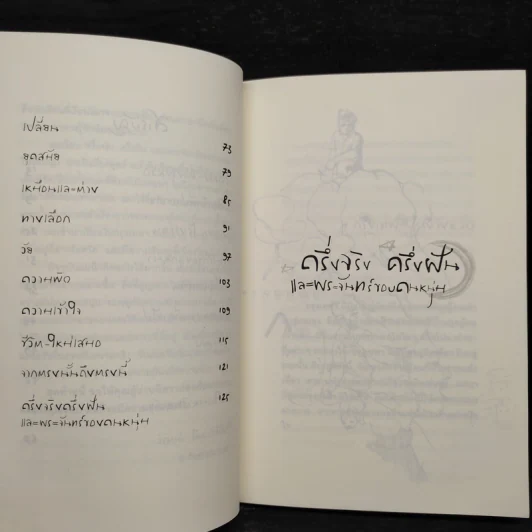 เปลี่ยน 73
ยุคสมัย 79
เหมือนและต่าง 85
ทางเลือก 91
วัย 97
ความผิด 103
ความเข้าใจ 109
ชีวิตใหม่เสมอ 115
จากตรงนั้นถึงตรงนี้ 121
ครึ่งจริงครึ่งฝัน 125
และพระจันทร์ของคนหนุ่ม
ครึ่งจริง ครึ่งฝัน
และพระจันทร์ของคนหนุ่ม